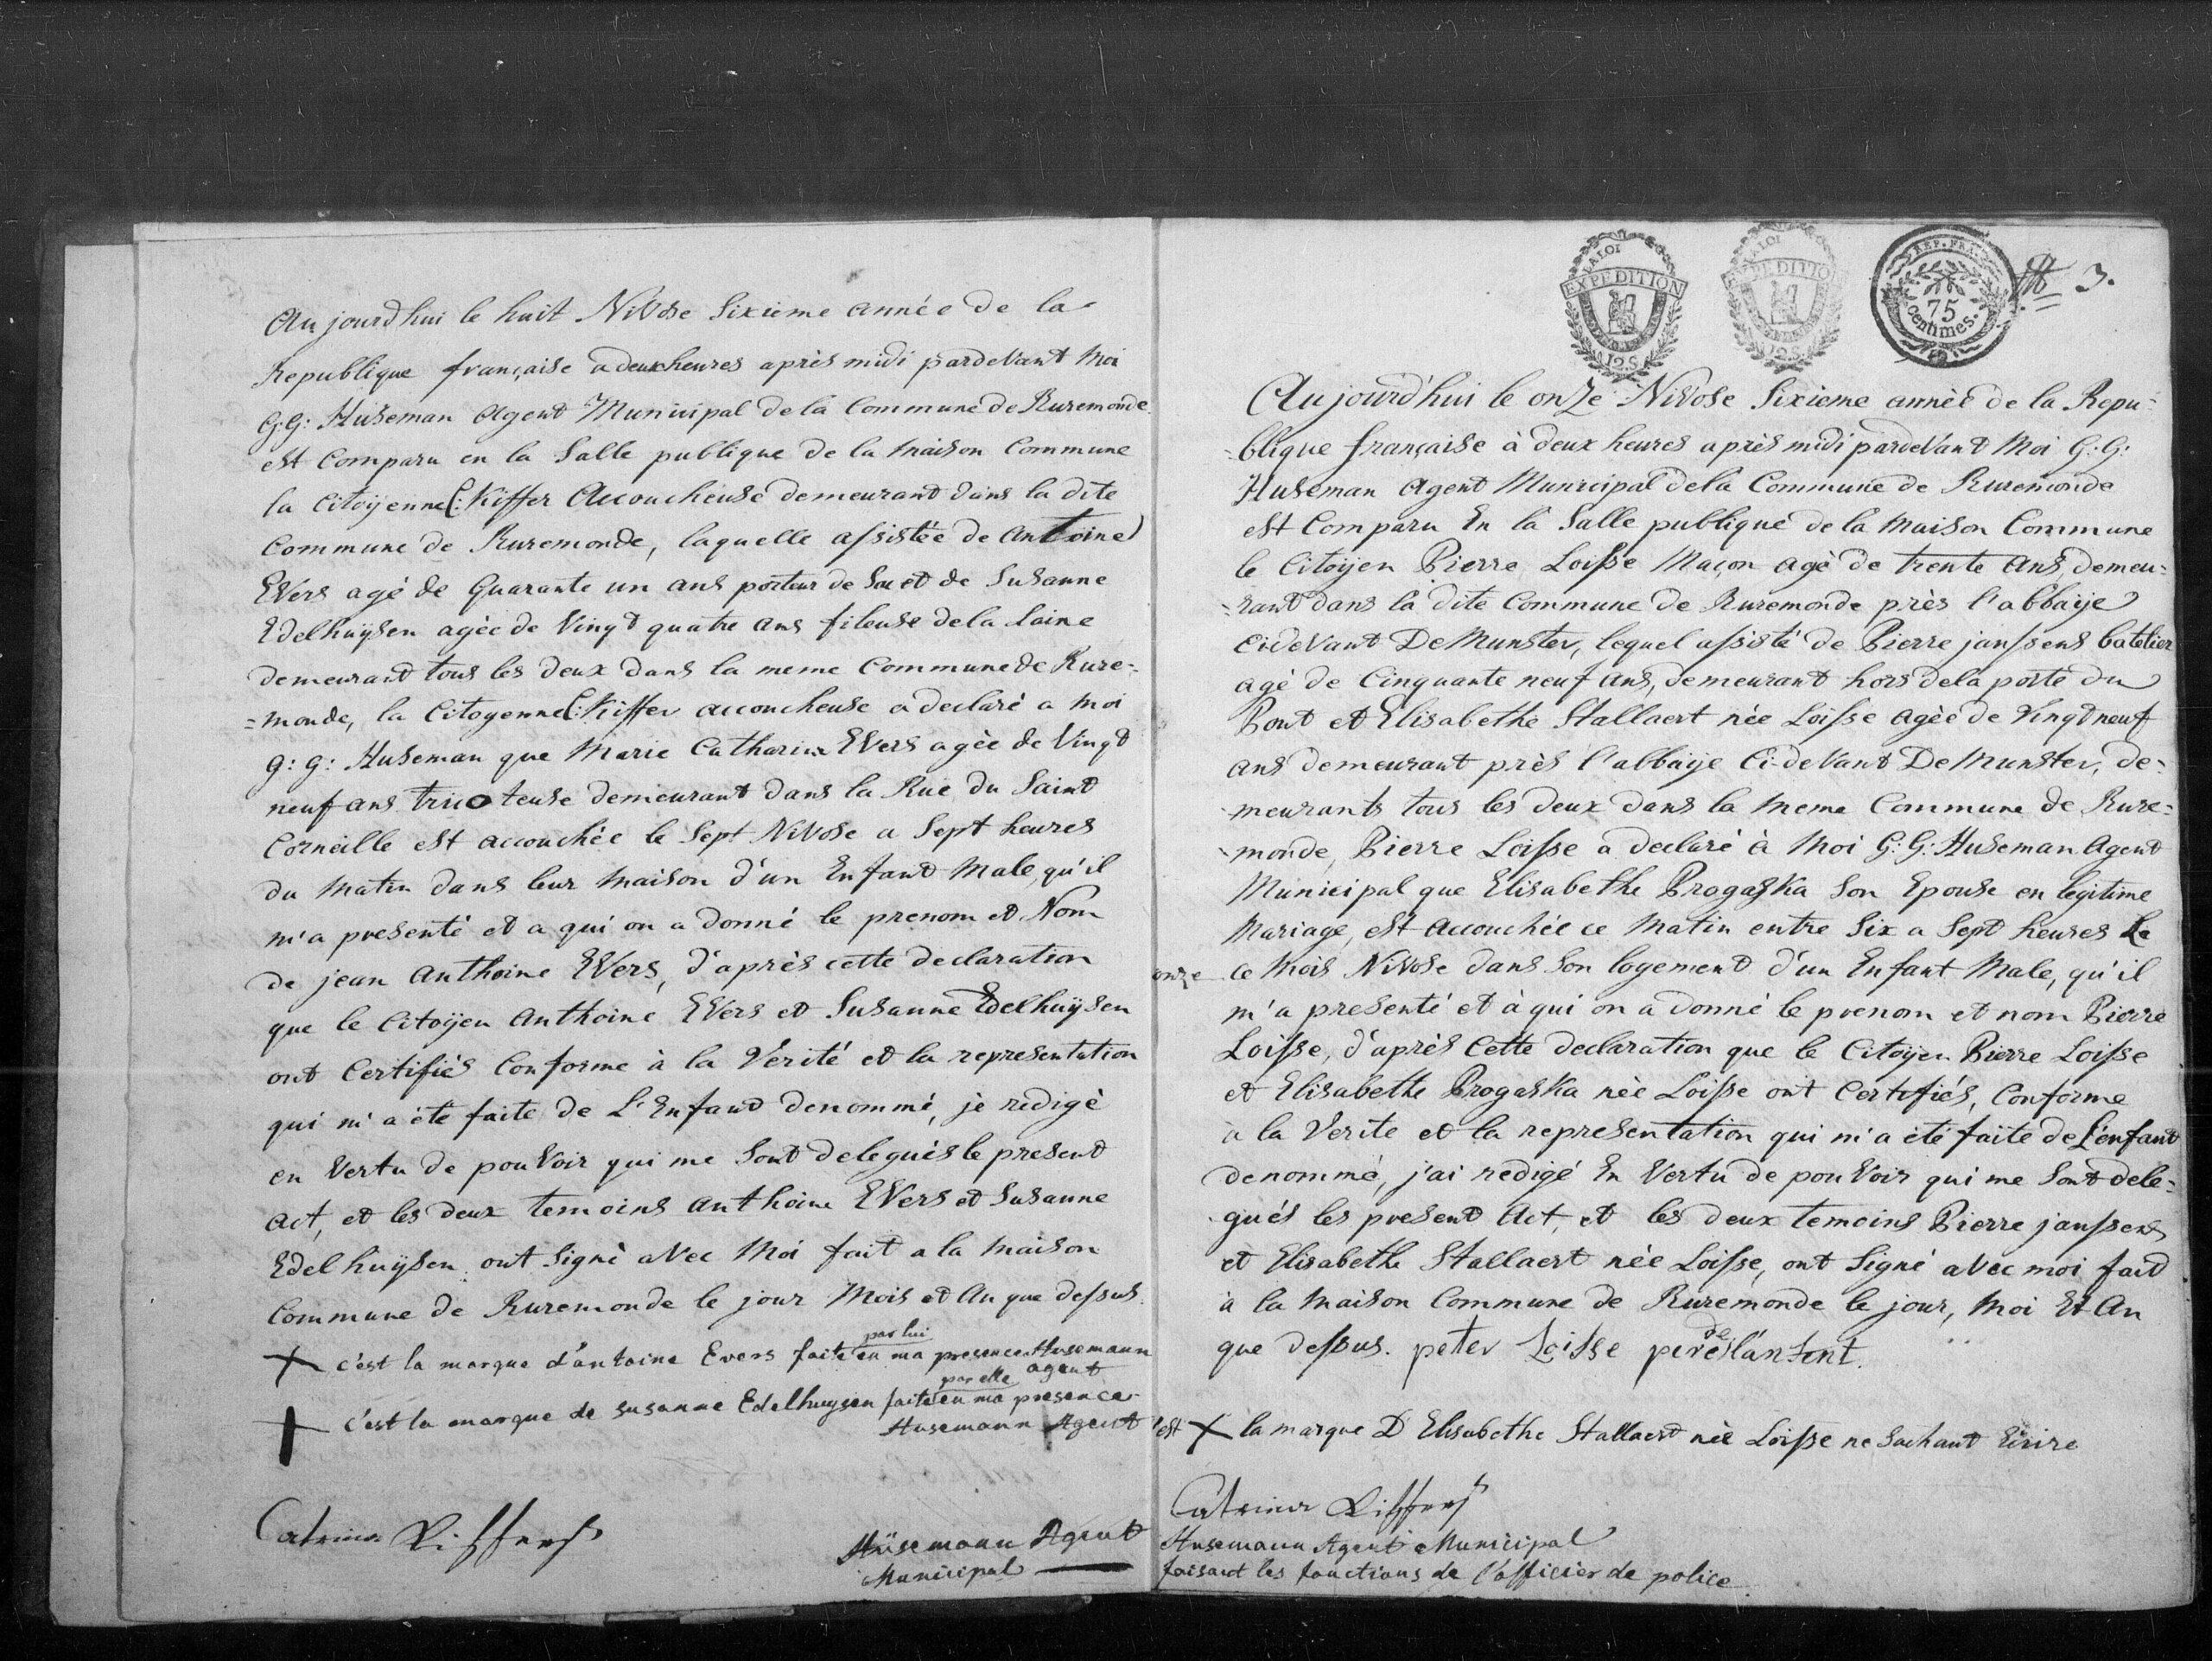 Aujourd'hui le huit Nivose Sixieme année de la
Republique française a deux heures après midi pardevant Moi
G: G: Huseman Agent Municipal de la Commune de Ruremonde
est Comparu en la Salle publique de la Maison Commune
la Citoÿenne C: Kiffer Accoucheuse demeurant dans la dite
Commune de Ruremonde, laquelle assistée de Antoine
Evers agé de Quarante un ans porteur de Sac et de Susanne
Edelhuijsen agèe de Vingt quatre ans fileuse de la laine
demeurant tous les deux dans la meme Commune de Rure=
=monde, la Citoyenne C: Kiffer accoucheuse a declaré a moi
g: g: Huseman que Marie Catharine Evers agèe de Vingt
neuf ans tricoteuse demeurant dans la Rue du Saint
Corneille est accouchée le Sept Nivose a Sept heures
du Matin dans leur Maison d'un Enfant Male, qu'il
m'a presenté et a qui on a donné le prenom et Nom
de jean Anthoine Evers, d'après cette declaration
que le Citoÿen Anthoine Evers et Susanne Edelhuÿsen
ont Certifiés Conforme à la Vérité et la representation
qui m'a été faite de L'Enfant denommé, je redigè
en Vertu de pouvoir qui me Sont deleguès le present
Act, et les deux temoins Anthoine Evers et Susanne
Edelhuÿsen ont Signè avec Moi fait a la Maison
Commune de Ruremonde le jour Mois et An que dessus.
par lui
+ c'est la marque d'antoine Evers faite en ma presence Husemann
agent
par elle
+ c'est la marque de susanne Edelhuysen faite en ma presence
Husemann Agent
Catrina Kiffers
Hüsemann Agent
Municipal
LA LOI
EXPEDITION
12.S.
LA LOI
EXPEDITION
12.S.
REP. FRA.
75
centimes.
3.
Aujourd'hui le onze Nivose Sixieme année de la Repu=
=blique française à deux heures après midi pardevant Moi G: G:
Huseman Agent Municipal dela Commune de Ruremonde
est Comparu En la Salle publique de la Maison Commune
le Citoÿen Pierre Loisse Maçon agè de trente Ans, demeu=
=rant dans la dite Commune de Ruremonde près l'abbaÿe
Ci-devant De Munster, lequel assisté de Pierre janssens batelier
agè de Cinquante neuf ans, demeurant hors dela porte du
Pont et Elisabethe Stallaert née Loisse agèe de Vingt neuf
ans demeurant près l'abbaÿe Ci-devant De Munster, de=
=meurants tous les deux dans la Meme Commune de Rure=
=monde, Pierre Loisse a declaré à Moi G: G: Huseman Agent
Municipal que Elisabethe Progaska Son Epouse en legitime
Mariage, est accouchée ce Matin entre Six a Sept heures Le
onze ce Mois Nivose dans Son logement d'un Enfant Male, qu'il
m'a presenté et à qui on a donné le prenom et nom Pierre
Loisse, d'après Cette declaration que le Citoÿen Pierre Loisse
et Elisabethe Progaska née Loisse ont Certifiés, Conforme
a la Verite et la representation qui m'a été faite de L'enfant
denommé, j'ai redigé En Vertu de pouvoir qui me Sont dele=
gués les present Act, et les deux temoins Pierre janssens
et Elisabethe Stallaert née Loisse, ont Signé avec moi fait
à la Maison Commune de Ruremonde le jour, Moi Et An
que dessus. peter Loisse pere de lanfent.
c'est + la marque D'Elisabethe Stallaert née Loisse ne Sachant Ecrire
Catrina Kiffers
Husemann Agent Municipal
faisant les fonctions de l'officier de police